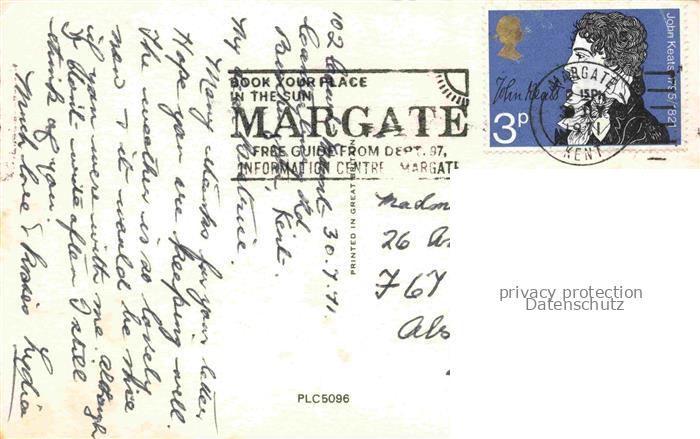 BOOK YOUR PLACE
IN THE SUN
MARGATE
FREE GUIDE FROM DEPT. 97,
INFORMATION CENTRE MARGATE
John Keats 1795-1821
John Keats
3p
MARGATE
KENT
102
Kent.
30.7.71.
My
Many thanks for your letter
Hope you are keeping well.
The weather is so lovely
now & it would be nice
if you were with me. although
I don't write often I still
think of you.
Much love & kisses Lydia
PRINTED IN GREAT BRITAIN
26
F 67
Als
privacy protection
Datenschutz
PLC5096